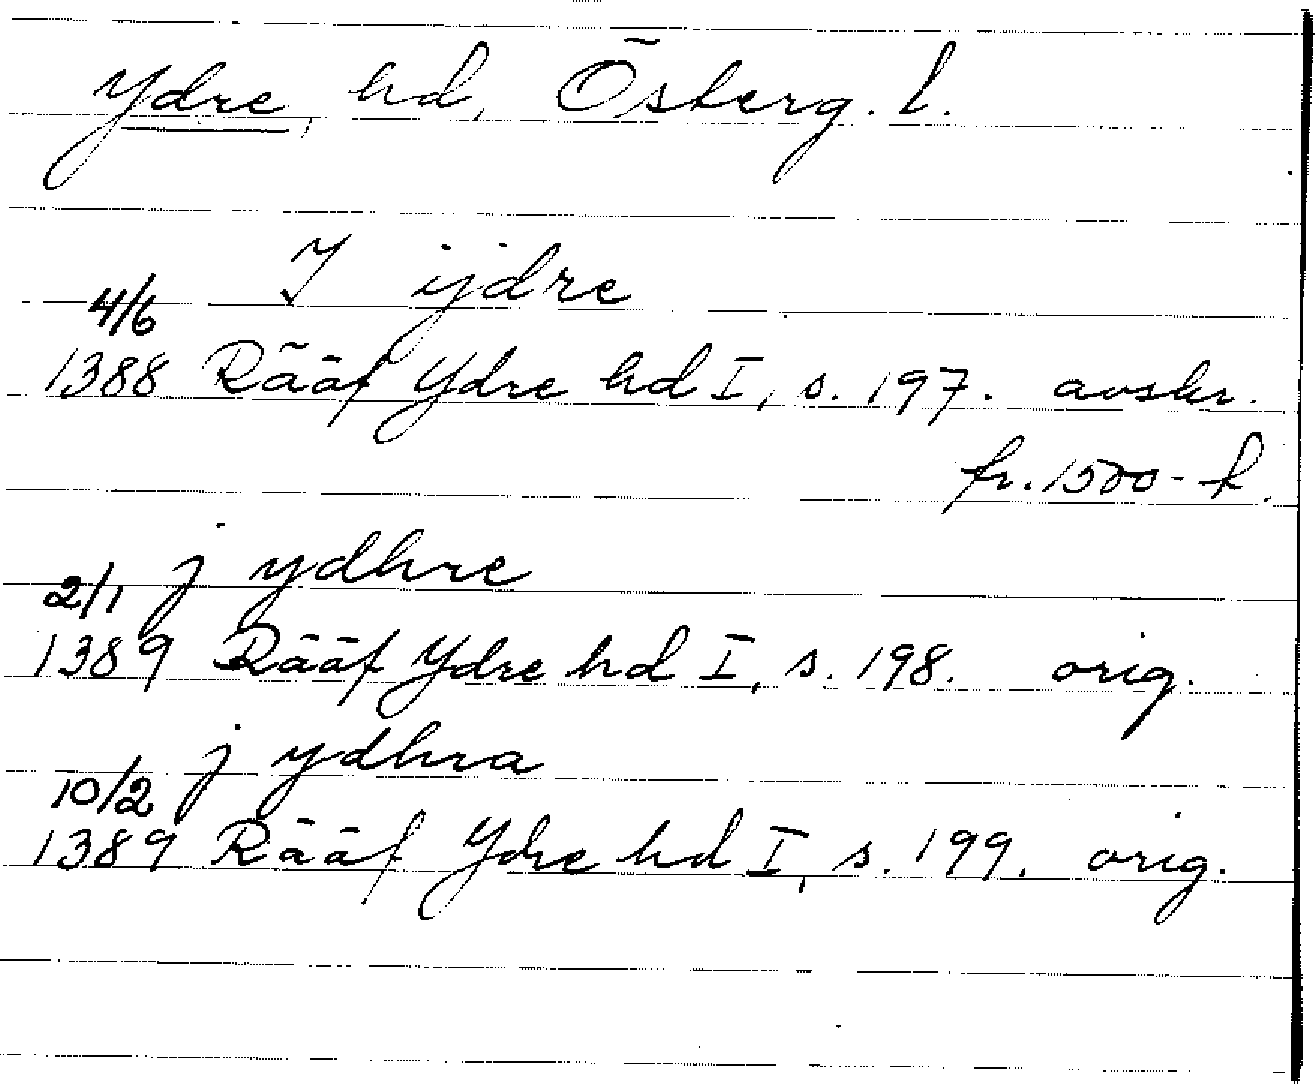 Ydre, hd, Österg. l.
I ijdre
4/6
1388 Rääf Ydre hd I, s. 197. avskr.
fr. 1500-t.
j ydhre
2/1
1389 Rääf Ydre hd I, s. 198. orig.
j ydhra
10/2
1389 Rääf Ydre hd I, s. 199. orig.